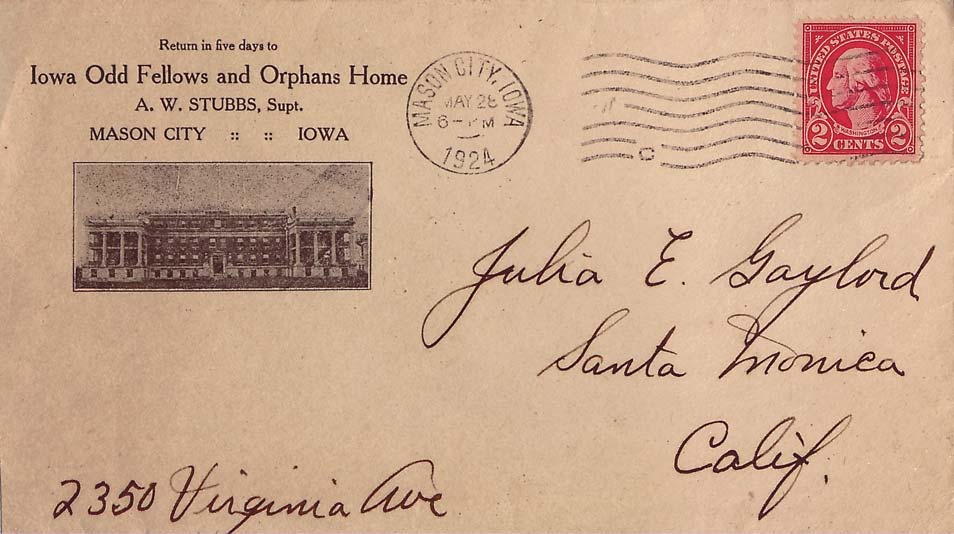 Return in five days to
Iowa Odd Fellows and Orphans Home
A. W. STUBBS, Supt.
MASON CITY :: :: IOWA
MASON CITY, IOWA
MAY 28
6-PM
1924
C
UNITED STATES POSTAGE
WASHINGTON
2 CENTS 2
Julia E. Gaylord
Santa Monica
Calif.
2350 Virginia Ave